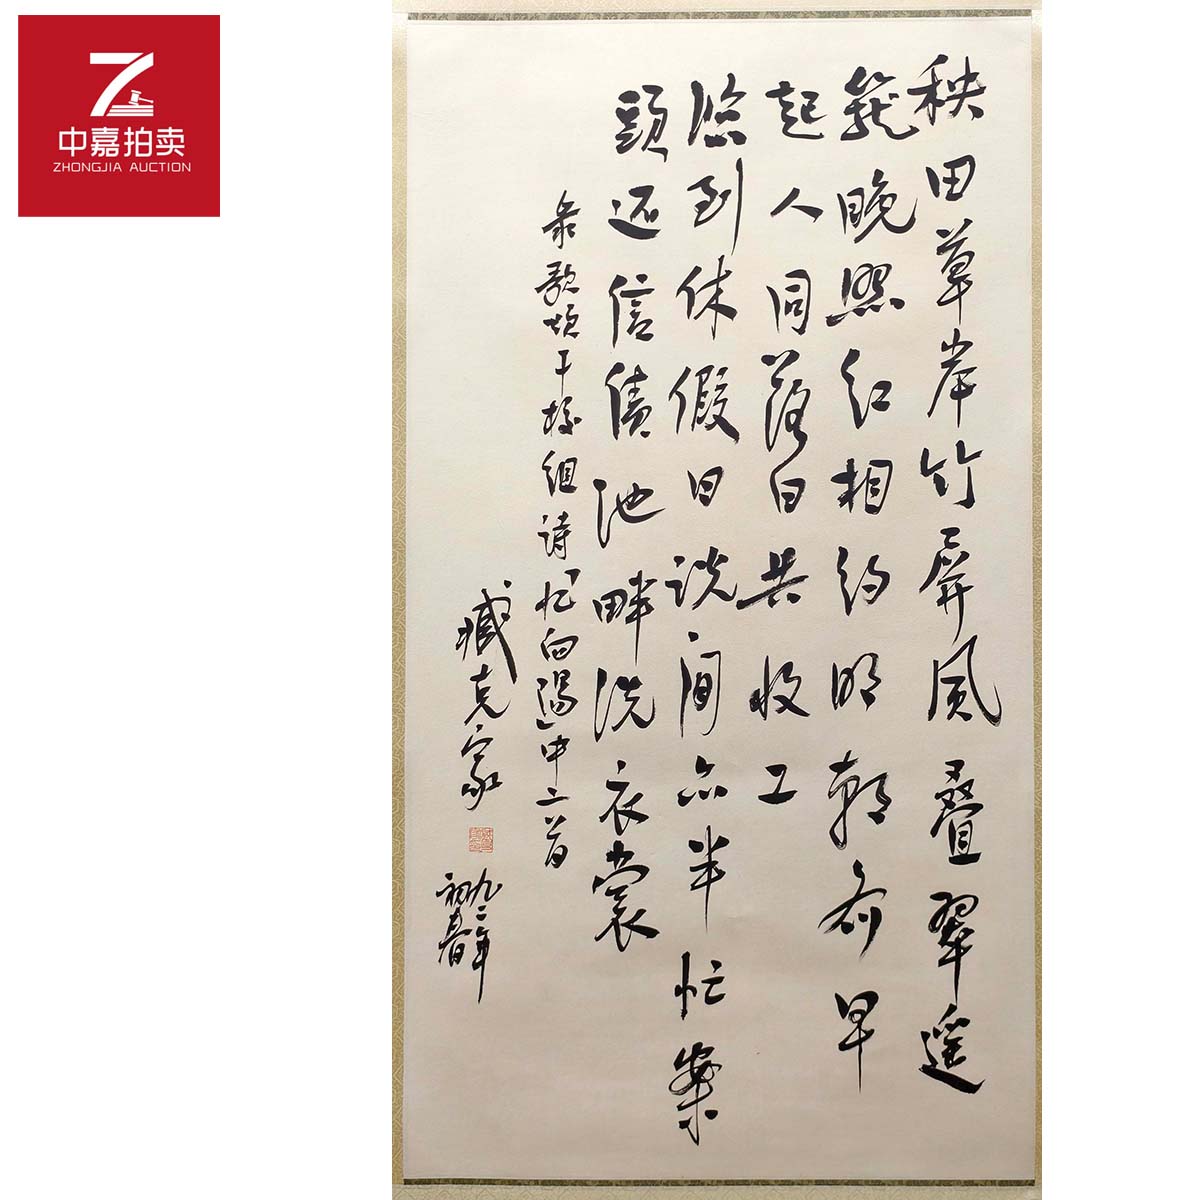 中嘉拍卖
ZHONGJIA AUCTION
秧田草岸竹屏風疊翠遥
籠晚照红相约明朝齐早
起人同落日共收工
到休假日谈间亦半忙案
頭还信债池畔洗衣裳
余歌颂干校组诗「忆向阳」中二首
臧克家
九二年
初春